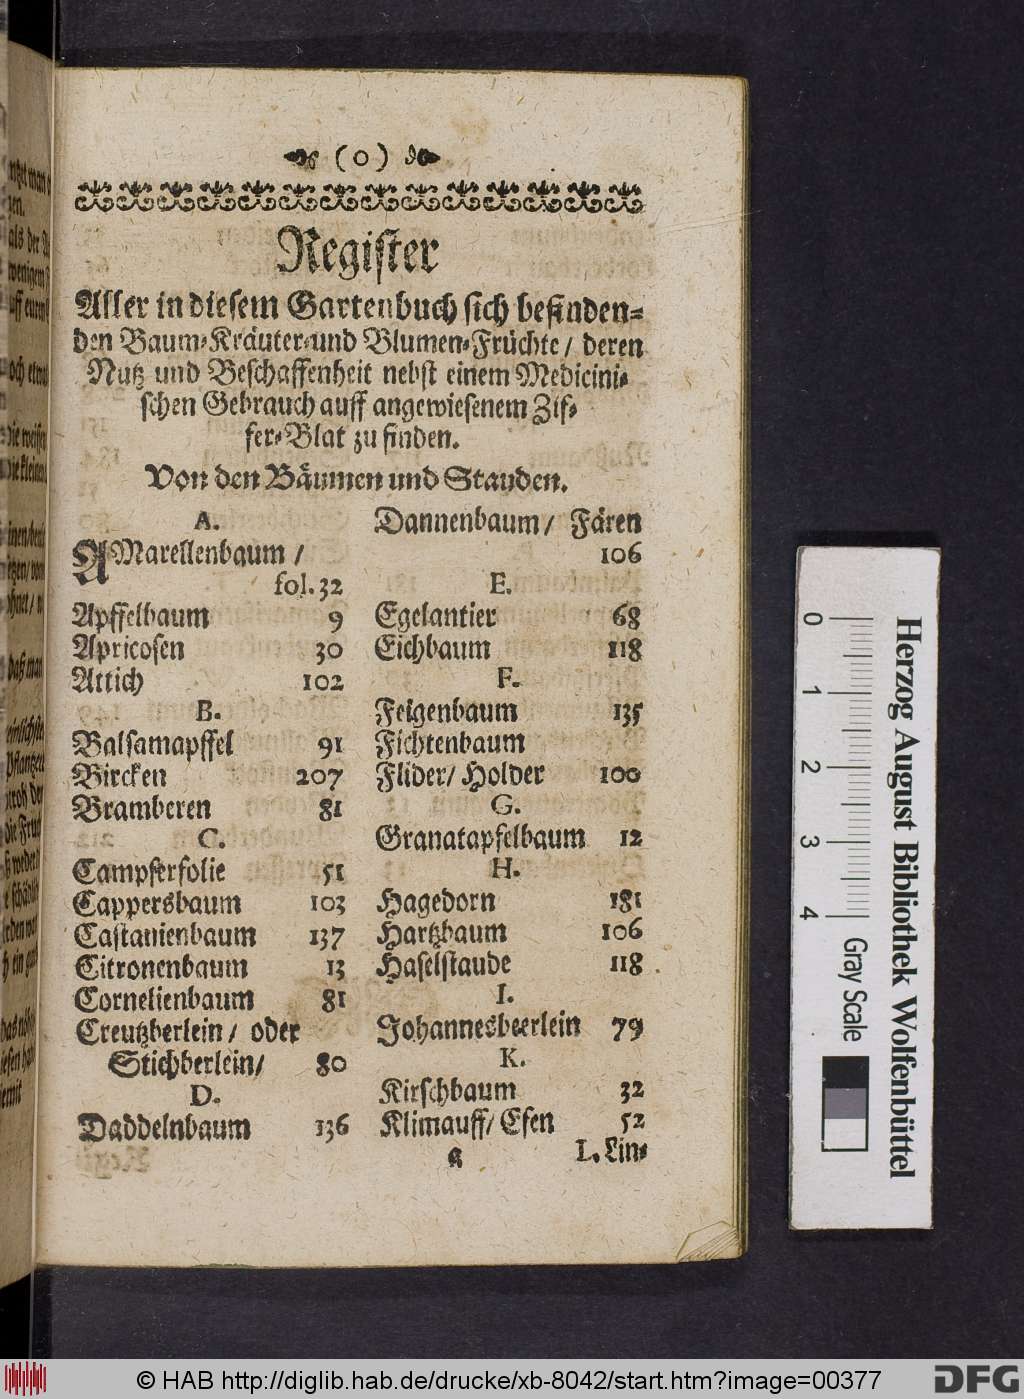 (0)
Register
Aller in diesem Gartenbuch sich befinden-
den Baum-Kräuter-und Blumen-Früchte / deren
Nutz und Beschaffenheit nebst einem Medicini-
schen Gebrauch auff angewiesenem Zif-
fer-Blat zu finden.
Von den Bäumen und Stauden.
A.
AMarellenbaum /
fol. 32
Apffelbaum 9
Apricosen 30
Attich 102
B.
Balsamapffel 91
Bircken 207
Bramberen 81
C.
Campferfolie 51
Cappersbaum 103
Castanienbaum 137
Citronenbaum 13
Cornelienbaum 81
Creutzberlein / oder
Stichberlein / 80
D.
Daddelnbaum 136
Dannenbaum / Fären
106
E.
Egelantier 68
Eichbaum 118
F.
Feigenbaum 135
Fichtenbaum
Flider / Holder 100
G.
Granatapfelbaum 12
H.
Hagedorn 181
Hartzbaum 106
Haselstaude 118
I.
Johannesbeerlein 79
K.
Kirschbaum 32
Klimauff / Efen 52
a
L. Lin-
0 1 2 3 4
Gray Scale
Herzog August Bibliothek Wolfenbüttel
© HAB http://diglib.hab.de/drucke/xb-8042/start.htm?image=00377
DFG